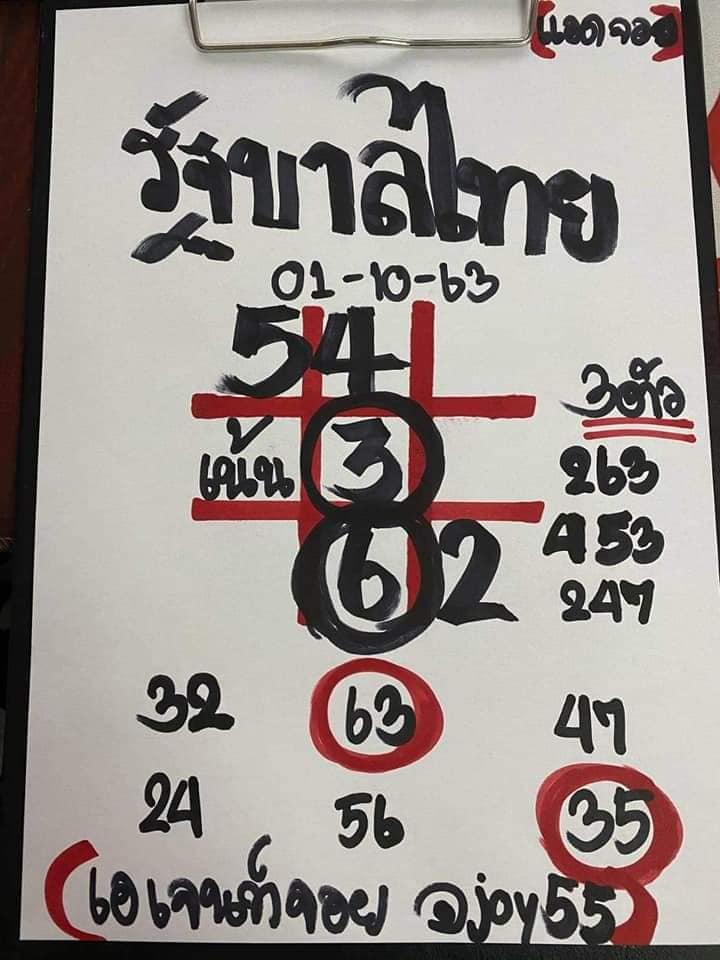 แอด จอย
รัฐบาลไทย
01-10-63
54
3ตัว
เน้น 3 263
453
62
247
32 63 47
24 56 35
เอเจนท์จอย @joy55